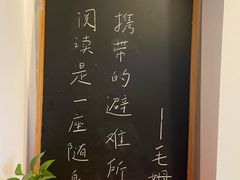 阅读是一座随身
携带的避难所
—毛姆